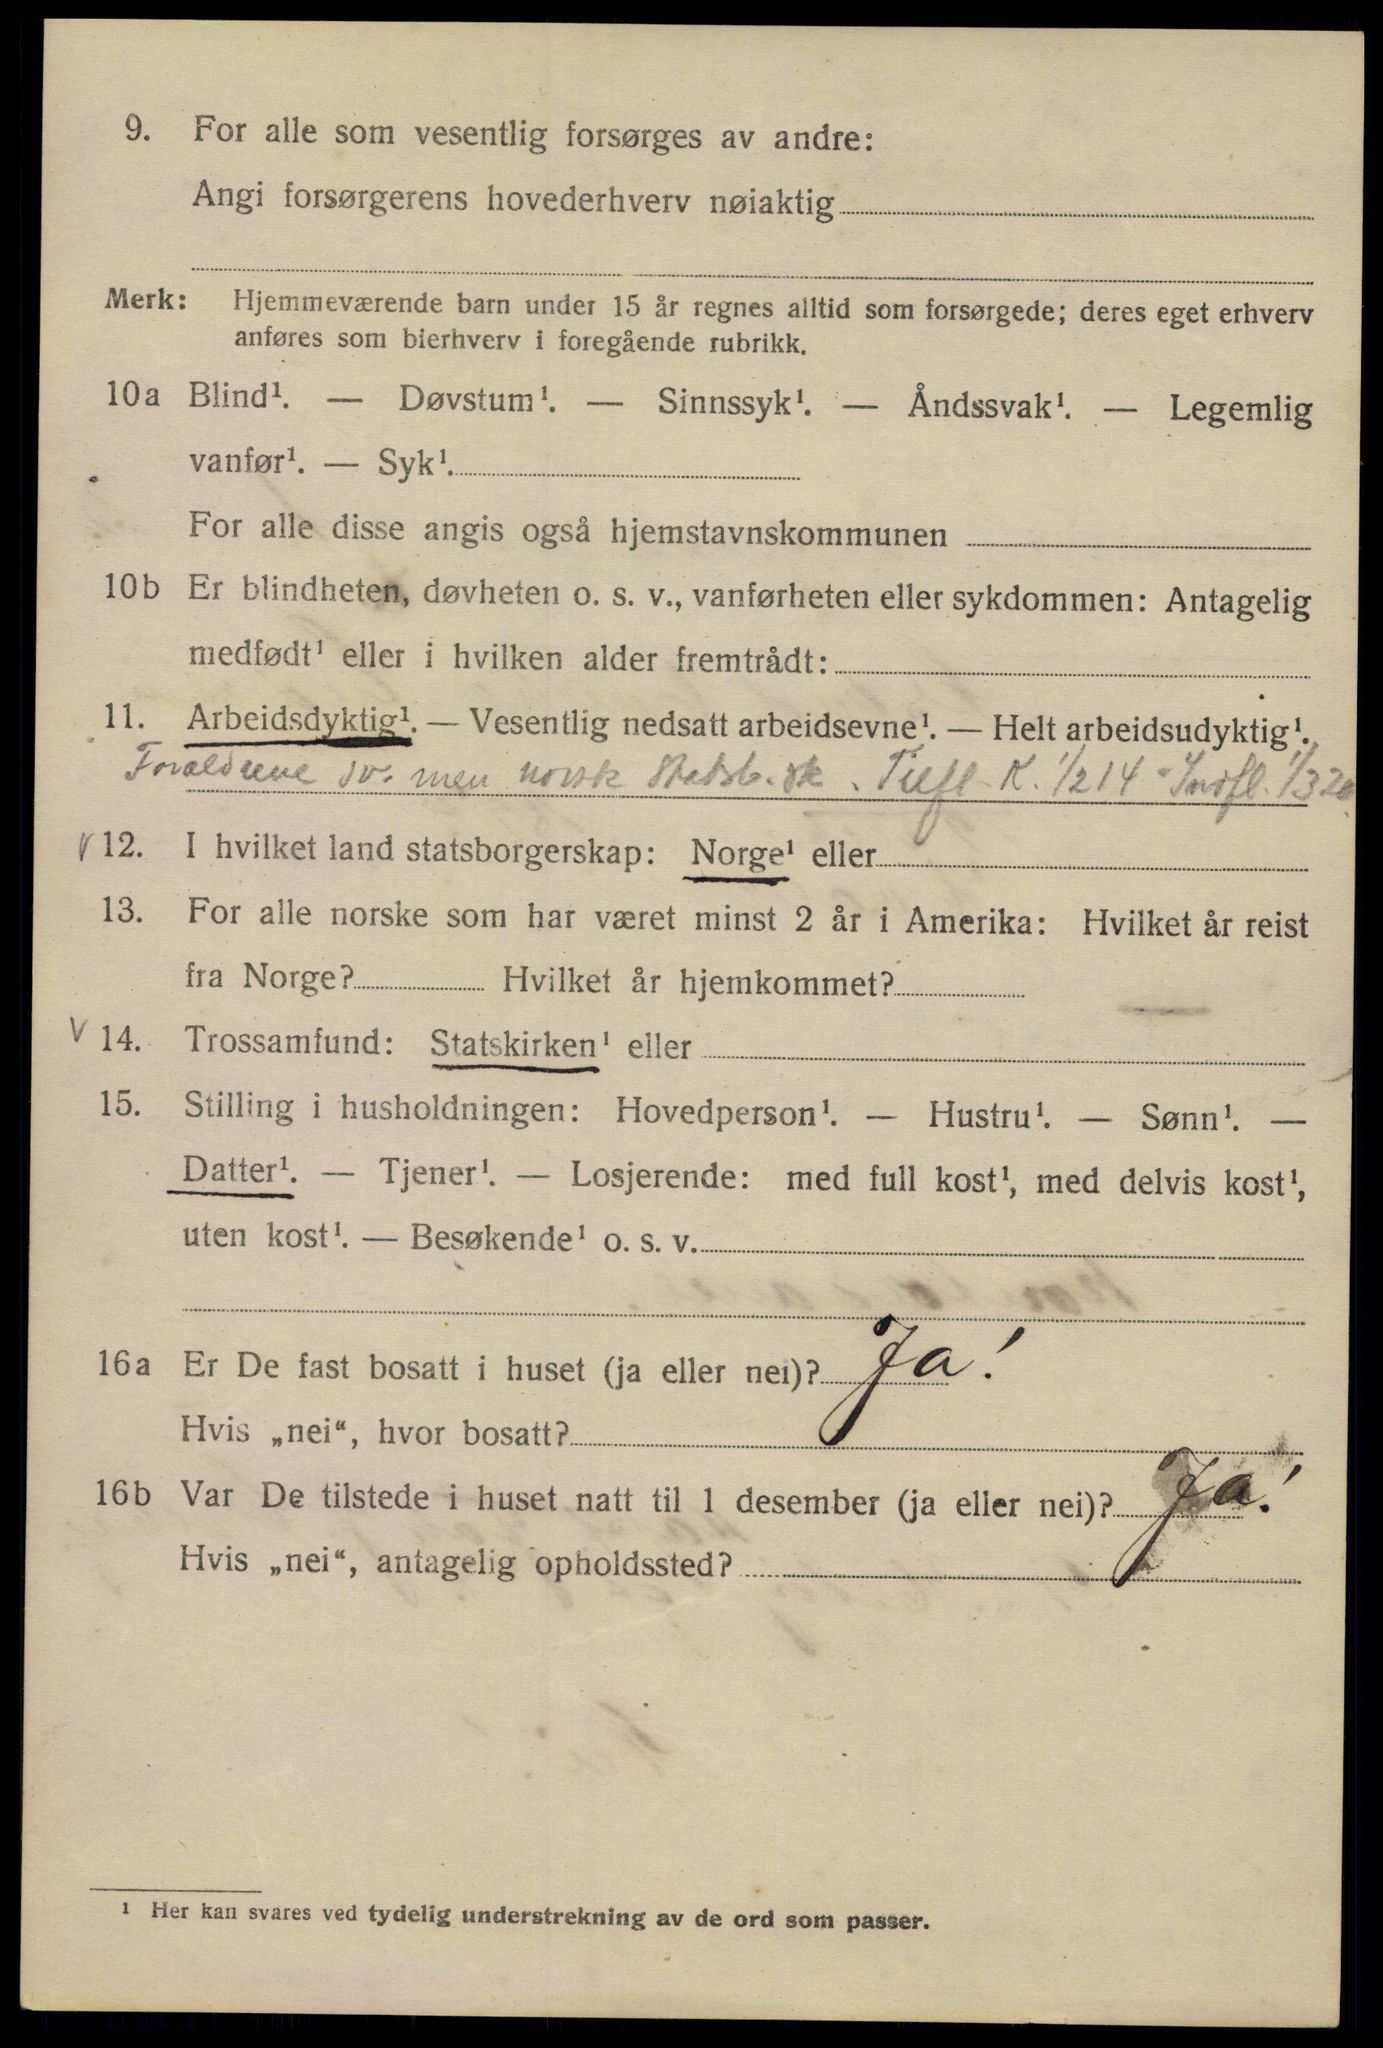 9. For alle som vesentlig forsørges av andre:
Angi forsørgerens hovederhverv nøiaktig
Merk: Hjemmeværende barn under 15 år regnes alltid som forsørgede; deres eget erhverv
anføres som bierhverv i foregående rubrikk.
10a Blind¹. — Døvstum¹. — Sinnssyk¹. — Åndssvak¹. — Legemlig
vanfør¹. — Syk¹.
For alle disse angis også hjemstavnskommunen
10b Er blindheten, døvheten o. s. v., vanførheten eller sykdommen: Antagelig
medfødt¹ eller i hvilken alder fremtrådt:
11. Arbeidsdyktig¹. — Vesentlig nedsatt arbeidsevne¹. — Helt arbeidsudyktig¹.
Forældrene sv. men norsk Statsb.sk. Tilfl. K. 1/2 14 - Indfl. 1/3 20
V 12. I hvilket land statsborgerskap: Norge¹ eller
13. For alle norske som har været minst 2 år i Amerika: Hvilket år reist
fra Norge? Hvilket år hjemkommet?
V 14. Trossamfund: Statskirken¹ eller
15. Stilling i husholdningen: Hovedperson¹. — Hustru¹. — Sønn¹. —
Datter¹. — Tjener¹. — Losjerende: med full kost¹, med delvis kost¹,
uten kost¹. — Besøkende¹ o. s. v.
16a Er De fast bosatt i huset (ja eller nei)? Ja!
Hvis „nei“, hvor bosatt?
16b Var De tilstede i huset natt til 1 desember (ja eller nei)? Ja!
Hvis „nei“, antagelig opholdssted?
¹ Her kan svares ved tydelig understrekning av de ord som passer.